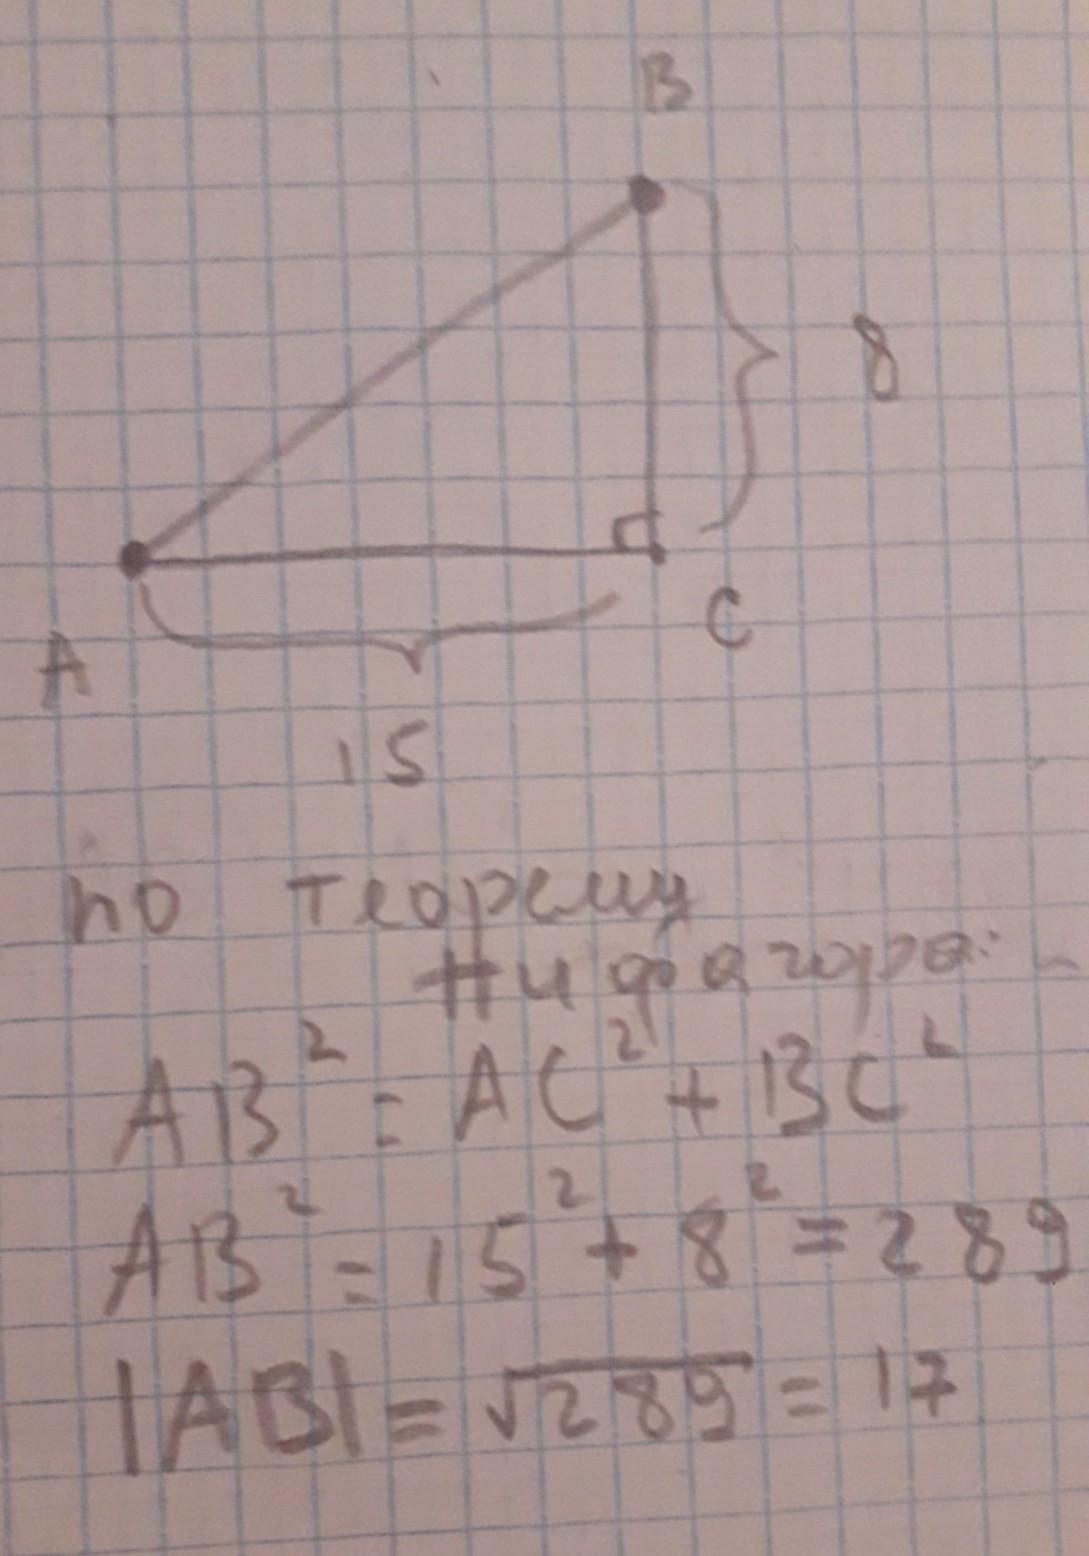 B
8
A
C
15
по теорему
Пифагора:
AB² = AC² + BC²
AB² = 15² + 8² = 289
|AB| = √289 = 17